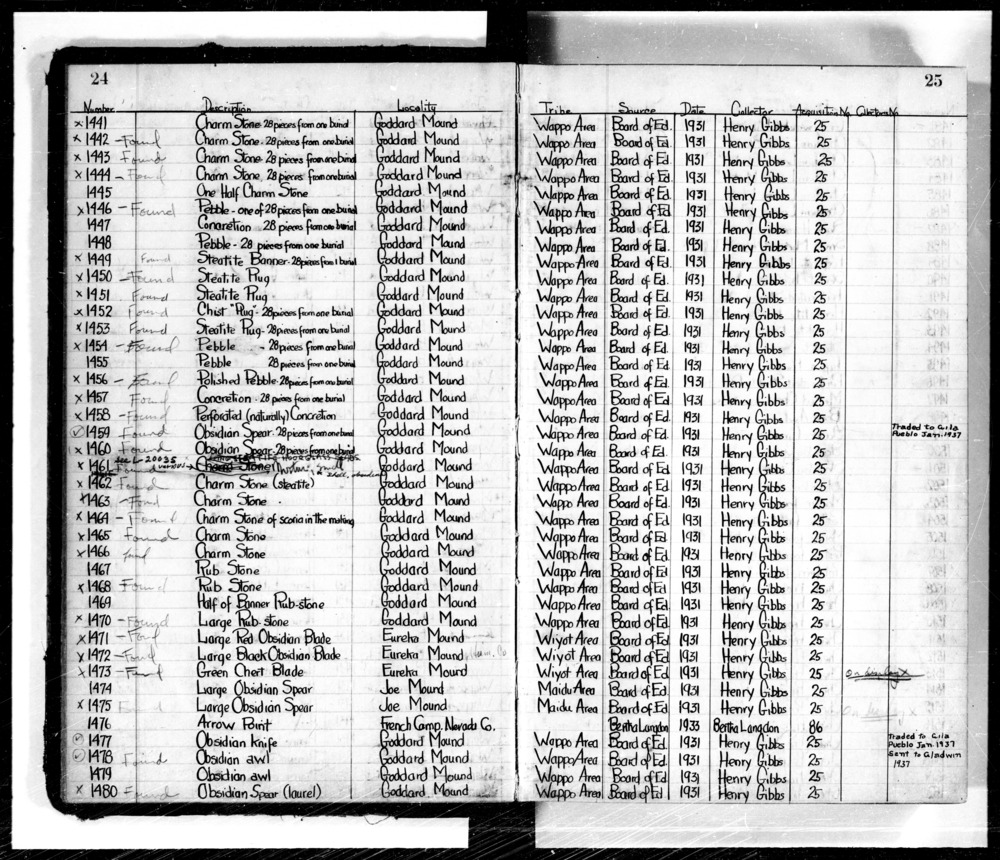 24
25
Number Description Locality Tribe Source Date Collector Acquisition No. Collectors No.
x 1441 Charm Stone 28 pieces from one burial Goddard Mound Wappo Area Board of Ed. 1931 Henry Gibbs 25
x 1442 - Found Charm Stone - 28 pieces from one burial Goddard Mound Wappo Area Board of Ed. 1931 Henry Gibbs 25
x 1443 Found Charm Stone 28 pieces from one burial Goddard Mound Wappo Area Board of Ed. 1931 Henry Gibbs 25
x 1444 - Found Charm Stone 28 pieces from one burial Goddard Mound Wappo Area Board of Ed. 1931 Henry Gibbs 25
1445 One Half Charm Stone Goddard Mound Wappo Area Board of Ed. 1931 Henry Gibbs 25
x 1446 - Found Pebble - one of 28 pieces from one burial Goddard Mound Wappo Area Board of Ed. 1931 Henry Gibbs 25
1447 Concretion 28 pieces from one burial Goddard Mound Wappo Area Board of Ed. 1931 Henry Gibbs 25
1448 Pebble - 28 pieces from one burial Goddard Mound Wappo Area Board of Ed. 1931 Henry Gibbs 25
x 1449 Found Steatite Banner - 28 pieces from 1 burial Goddard Mound Wappo Area Board of Ed. 1931 Henry Gibbs 25
x 1450 - Found Steatite Plug Goddard Mound Wappo Area Board of Ed. 1931 Henry Gibbs 25
x 1451 Found Steatite Plug Goddard Mound Wappo Area Board of Ed. 1931 Henry Gibbs 25
x 1452 Found Chist "Plug" - 28 pieces from one burial Goddard Mound Wappo Area Board of Ed. 1931 Henry Gibbs 25
x 1453 Found Steatite Plug - 28 pieces from one burial Goddard Mound Wappo Area Board of Ed. 1931 Henry Gibbs 25
x 1454 - Found Pebble - 28 pieces from one burial Goddard Mound Wappo Area Board of Ed. 1931 Henry Gibbs 25
1455 Pebble 28 pieces from one burial Goddard Mound Wappo Area Board of Ed. 1931 Henry Gibbs 25
x 1456 - Found Polished Pebble - 28 pieces from one burial Goddard Mound Wappo Area Board of Ed. 1931 Henry Gibbs 25
x 1457 Found Concretion - 28 pieces from one burial Goddard Mound Wappo Area Board of Ed. 1931 Henry Gibbs 25
x 1458 - Found Perforated (naturally) Concretion Goddard Mound Wappo Area Board of Ed. 1931 Henry Gibbs 25
1459 Found Obsidian Spear - 28 pieces from one burial Goddard Mound Wappo Area Board of Ed. 1931 Henry Gibbs 25 Traded to Gila Pueblo Jan. 1937
x 1460 Found Obsidian Spear - 28 pieces from one burial Goddard Mound Wappo Area Board of Ed. 1931 Henry Gibbs 25
x 1461 20035 Charm Stone Goddard Mound Wappo Area Board of Ed. 1931 Henry Gibbs 25
x 1462 Found Charm Stone (steatite) Goddard Mound Wappo Area Board of Ed. 1931 Henry Gibbs 25
x 1463 - Found Charm Stone Goddard Mound Wappo Area Board of Ed. 1931 Henry Gibbs 25
x 1464 - Found Charm Stone of scoria in the making Goddard Mound Wappo Area Board of Ed. 1931 Henry Gibbs 25
x 1465 Found Charm Stone Goddard Mound Wappo Area Board of Ed. 1931 Henry Gibbs 25
x 1466 found Charm Stone Goddard Mound Wappo Area Board of Ed. 1931 Henry Gibbs 25
1467 Rub Stone Goddard Mound Wappo Area Board of Ed. 1931 Henry Gibbs 25
x 1468 Found Rub Stone Goddard Mound Wappo Area Board of Ed. 1931 Henry Gibbs 25
1469 Half of Banner Rub-stone Goddard Mound Wappo Area Board of Ed. 1931 Henry Gibbs 25
x 1470 - Found Large Rub-stone Goddard Mound Wappo Area Board of Ed. 1931 Henry Gibbs 25
x 1471 - Found Large Red Obsidian Blade Eureka Mound Wiyot Area Board of Ed. 1931 Henry Gibbs 25
x 1472 - Found Large Black Obsidian Blade Eureka Mound Hum. Co Wiyot Area Board of Ed. 1931 Henry Gibbs 25
x 1473 - Found Green Chert Blade Eureka Mound Wiyot Area Board of Ed. 1931 Henry Gibbs 25
1474 Large Obsidian Spear Joe Mound Maidu Area Board of Ed. 1931 Henry Gibbs 25
x 1475 Found Large Obsidian Spear Joe Mound Maidu Area Board of Ed. 1931 Henry Gibbs 25
1476 Arrow Point French Camp, Nevada Co. Bertha Langdon 1933 Bertha Langdon 86
1477 Obsidian knife Goddard Mound Wappo Area Board of Ed. 1931 Henry Gibbs 25 Traded to Gila Pueblo Jan. 1937
1478 Found Obsidian awl Goddard Mound Wappo Area Board of Ed. 1931 Henry Gibbs 25 Sent to Gladwin 1937
1479 Obsidian awl Goddard Mound Wappo Area Board of Ed. 1931 Henry Gibbs 25
x 1480 Found Obsidian Spear (laurel) Goddard Mound Wappo Area Board of Ed. 1931 Henry Gibbs 25